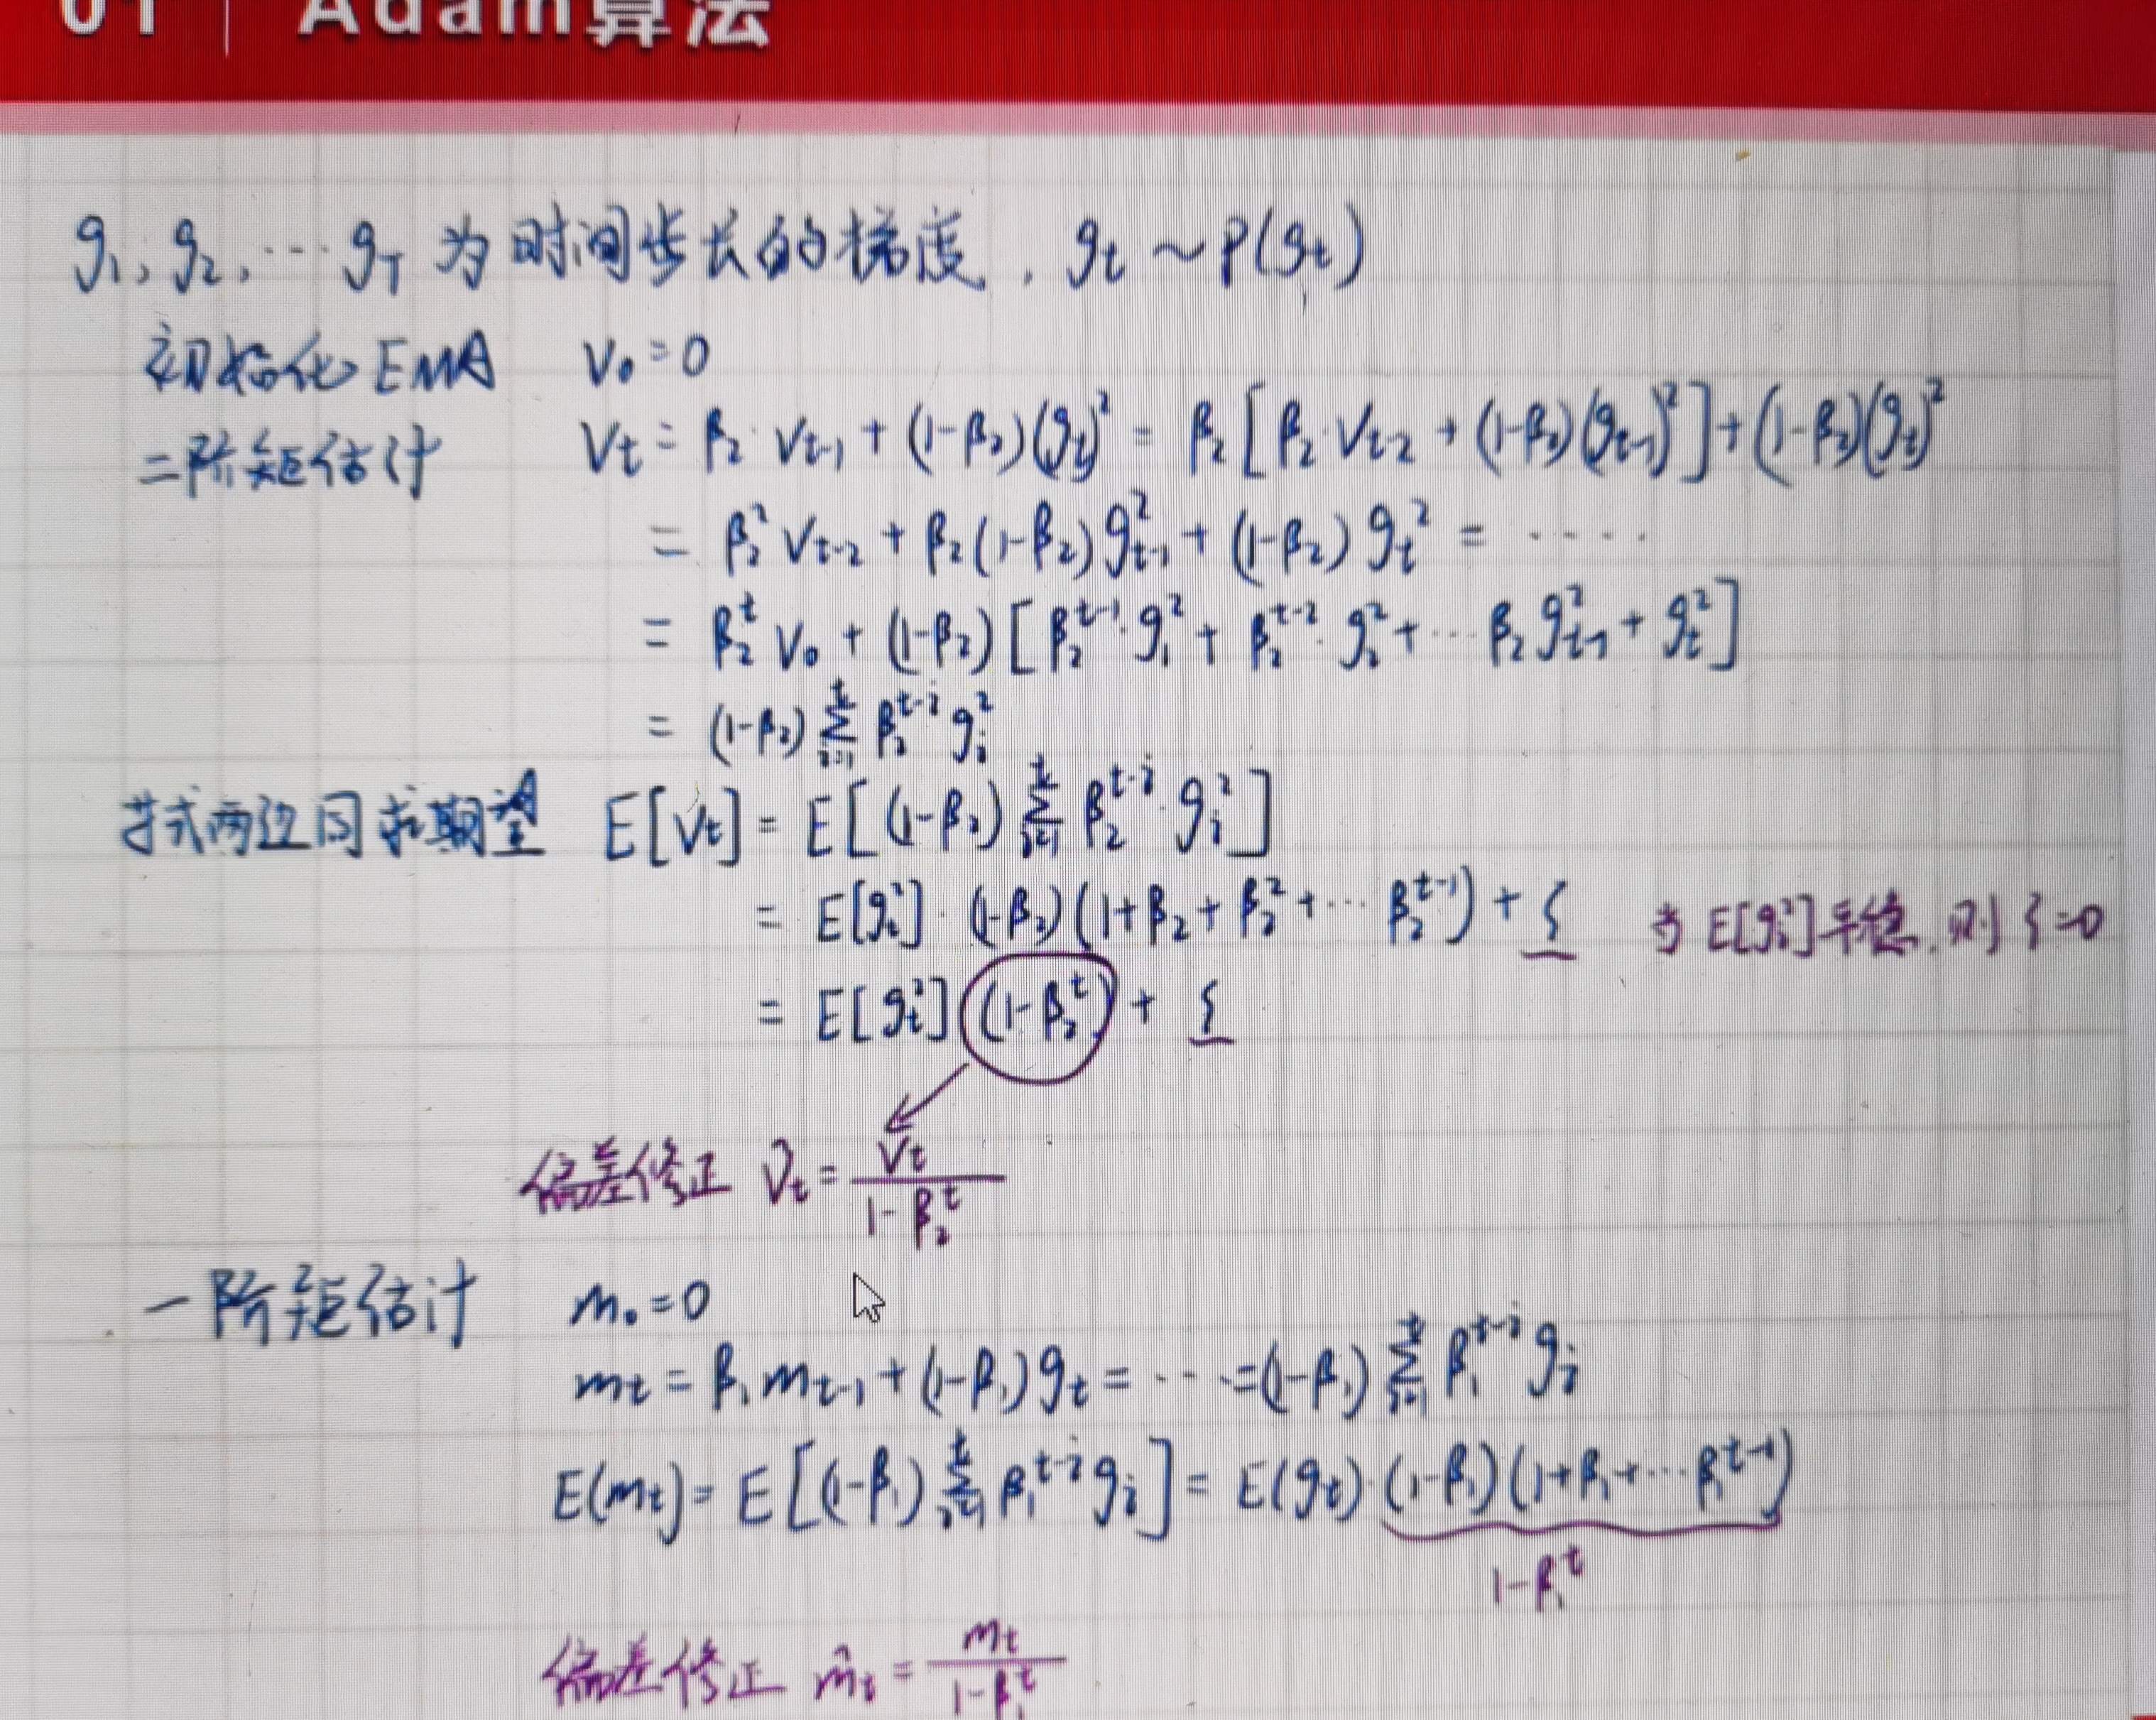 01 | Adam算法
g₁, g₂, … g_T 为时间步长的梯度, g_t ~ p(g_t)
初始化 EMA V₀ = 0
二阶矩估计 V_t = β₂·V_{t-1} + (1-β₂)(g_t)² = β₂[β₂·V_{t-2} + (1-β₂)(g_{t-1})²] + (1-β₂)(g_t)²
= β₂² V_{t-2} + β₂(1-β₂)g²_{t-1} + (1-β₂)g_t² = ·····
= β₂^t V₀ + (1-β₂)[β₂^{t-1}·g₁² + β₂^{t-2}·g₂² + … β₂g²_{t-1} + g_t²]
= (1-β₂) Σ_{i=1}^t β₂^{t-i} g_i²
式两边同求期望 E[V_t] = E[(1-β₂) Σ_{i=1}^t β₂^{t-i}·g_i²]
= E[g_t²]·(1-β₂)(1+β₂+β₂²+… β₂^{t-1}) + ξ 当 E[g_t²]平稳, 则 ξ=0
= E[g_t²](1-β₂^t) + ξ
偏差修正 V̂_t = V_t / (1-β₂^t)
一阶矩估计 m₀ = 0
m_t = β₁m_{t-1} + (1-β₁)g_t = … = (1-β₁) Σ_{i=1}^t β₁^{t-i} g_i
E(m_t) = E[(1-β₁) Σ_{i=1}^t β₁^{t-i} g_i] = E(g_t)·(1-β₁)(1+β₁+… β₁^{t-1})
1-β₁^t
偏差修正 m̂_t = m_t / (1-β₁^t)